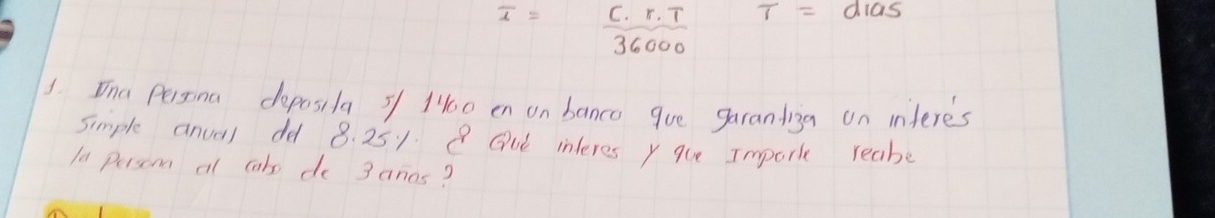 I = C. r. T T = dias
36000
1. Una Persona deposita s/ 1460 en un banco que garantiza un interés
Simple anual del 8.25%. ¿ Qué interes y que Importe recibe
la persona al cabo de 3 años?